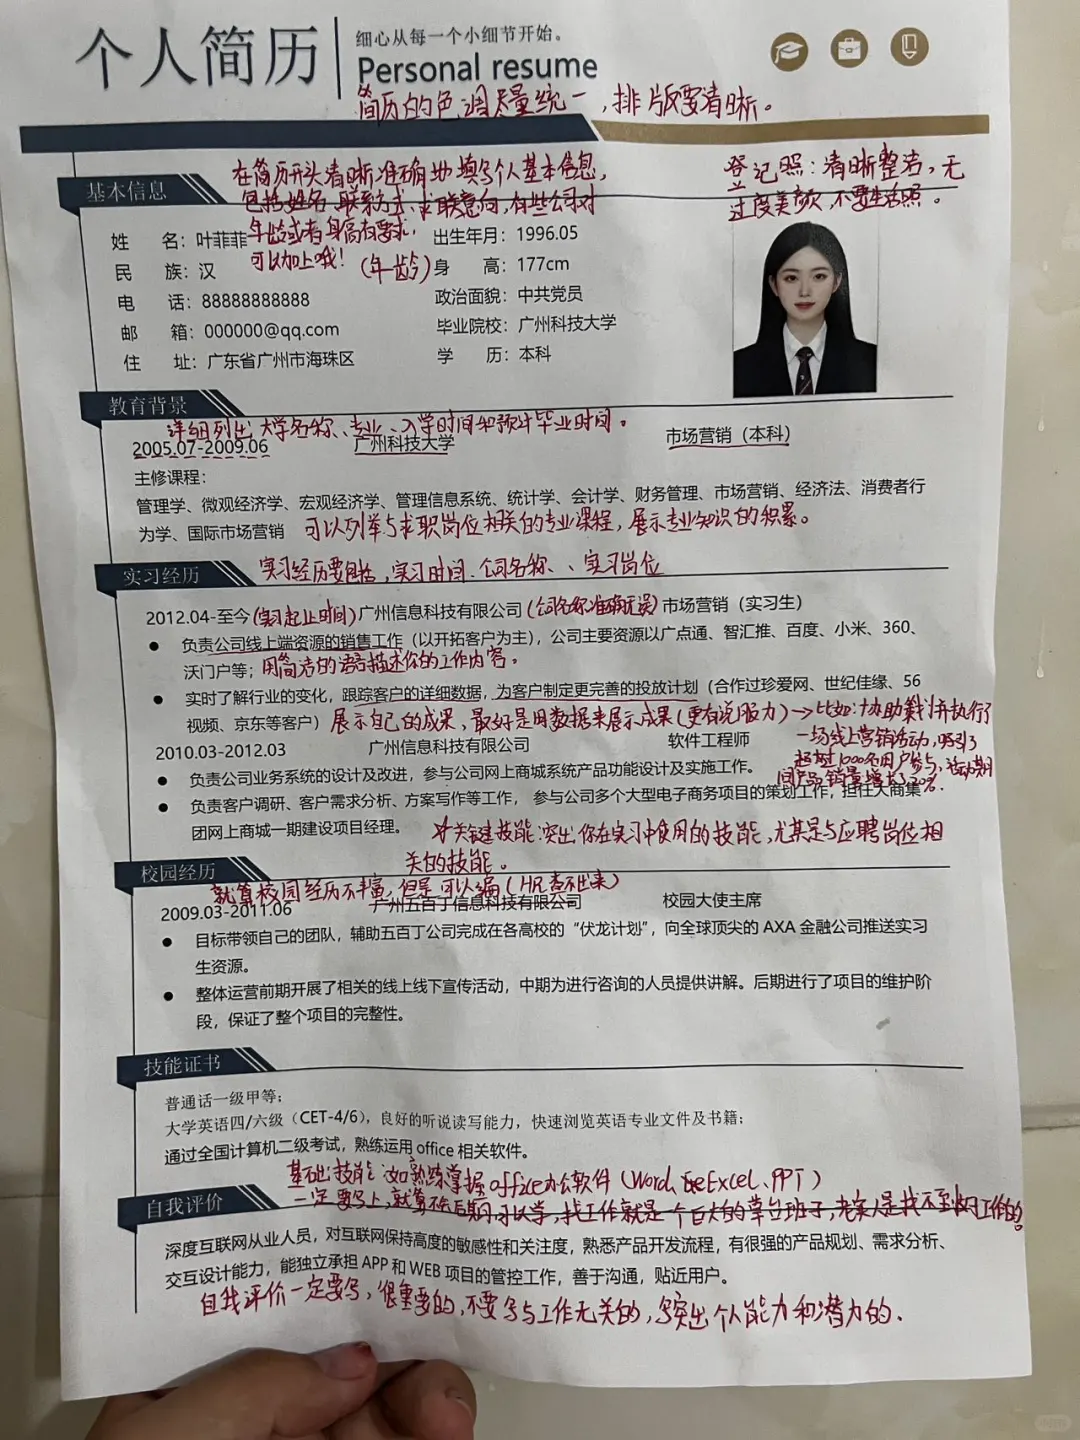 个人简历
细心从每一个小细节开始。
Personal resume
简历的色调尽量统一，排版要清晰。
基本信息
在简历开头清晰准确地填写个人基本信息，
包括姓名、联系方式、求职意向，有些公司对
年龄或者身高有要求，
可以加上哦！
(年龄)
登记照：清晰整洁，无
过度美颜，不要生活照。
姓 名：叶菲菲
出生年月：1996.05
民 族：汉
身 高：177cm
电 话：88888888888
政治面貌：中共党员
邮 箱：000000@qq.com
毕业院校：广州科技大学
住 址：广东省广州市海珠区
学 历：本科
教育背景
详细列出大学名称、专业、入学时间和预计毕业时间。
2005.07-2009.06 广州科技大学 市场营销（本科）
主修课程：
管理学、微观经济学、宏观经济学、管理信息系统、统计学、会计学、财务管理、市场营销、经济法、消费者行
为学、国际市场营销 可以列举与求职岗位相关的专业课程，展示专业知识的积累。
实习经历
实习经历要包括，实习时间、公司名称、、实习岗位
2012.04-至今(实习起止时间)广州信息科技有限公司(公司名称准确无误)市场营销（实习生）
● 负责公司线上端资源的销售工作（以开拓客户为主），公司主要资源以广点通、智汇推、百度、小米、360、
沃门户等；用简洁的语言描述你的工作内容。
● 实时了解行业的变化，跟踪客户的详细数据，为客户制定更完善的投放计划（合作过珍爱网、世纪佳缘、56
视频、京东等客户）展示自己的成果，最好是用数据来展示成果(更有说服力)→比如：协助策划并执行了
一场线上营销活动，吸引了
超过1000名用户参与，活动期
间产品销量增长了20%.
2010.03-2012.03 广州信息科技有限公司 软件工程师
● 负责公司业务系统的设计及改进，参与公司网上商城系统产品功能设计及实施工作。
● 负责客户调研、客户需求分析、方案写作等工作， 参与公司多个大型电子商务项目的策划工作，担任大商集
团网上商城一期建设项目经理。
关键技能：突出你在实习中使用的技能，尤其是与应聘岗位相
关的技能。
校园经历
就算校园经历不丰富，但是可以编(HR查不出来)
2009.03-2011.06 广州五百丁信息科技有限公司 校园大使主席
● 目标带领自己的团队，辅助五百丁公司完成在各高校的“伏龙计划”，向全球顶尖的 AXA 金融公司推送实习
生资源。
● 整体运营前期开展了相关的线上线下宣传活动，中期为进行咨询的人员提供讲解。后期进行了项目的维护阶
段，保证了整个项目的完整性。
技能证书
普通话一级甲等；
大学英语四/六级（CET-4/6），良好的听说读写能力，快速浏览英语专业文件及书籍；
通过全国计算机二级考试，熟练运用 office 相关软件。
基础技能：如熟练掌握office办公软件(Word、Excel、PPT)
一定要写上，就算不会后期可以学，找工作就是一个巨大的草台班子，老实人是找不到好工作的。
自我评价
深度互联网从业人员，对互联网保持高度的敏感性和关注度，熟悉产品开发流程，有很强的产品规划、需求分析、
交互设计能力，能独立承担 APP 和 WEB 项目的管控工作，善于沟通，贴近用户。
自我评价一定要写，很重要的，不要写与工作无关的，写突出个人能力和潜力的.